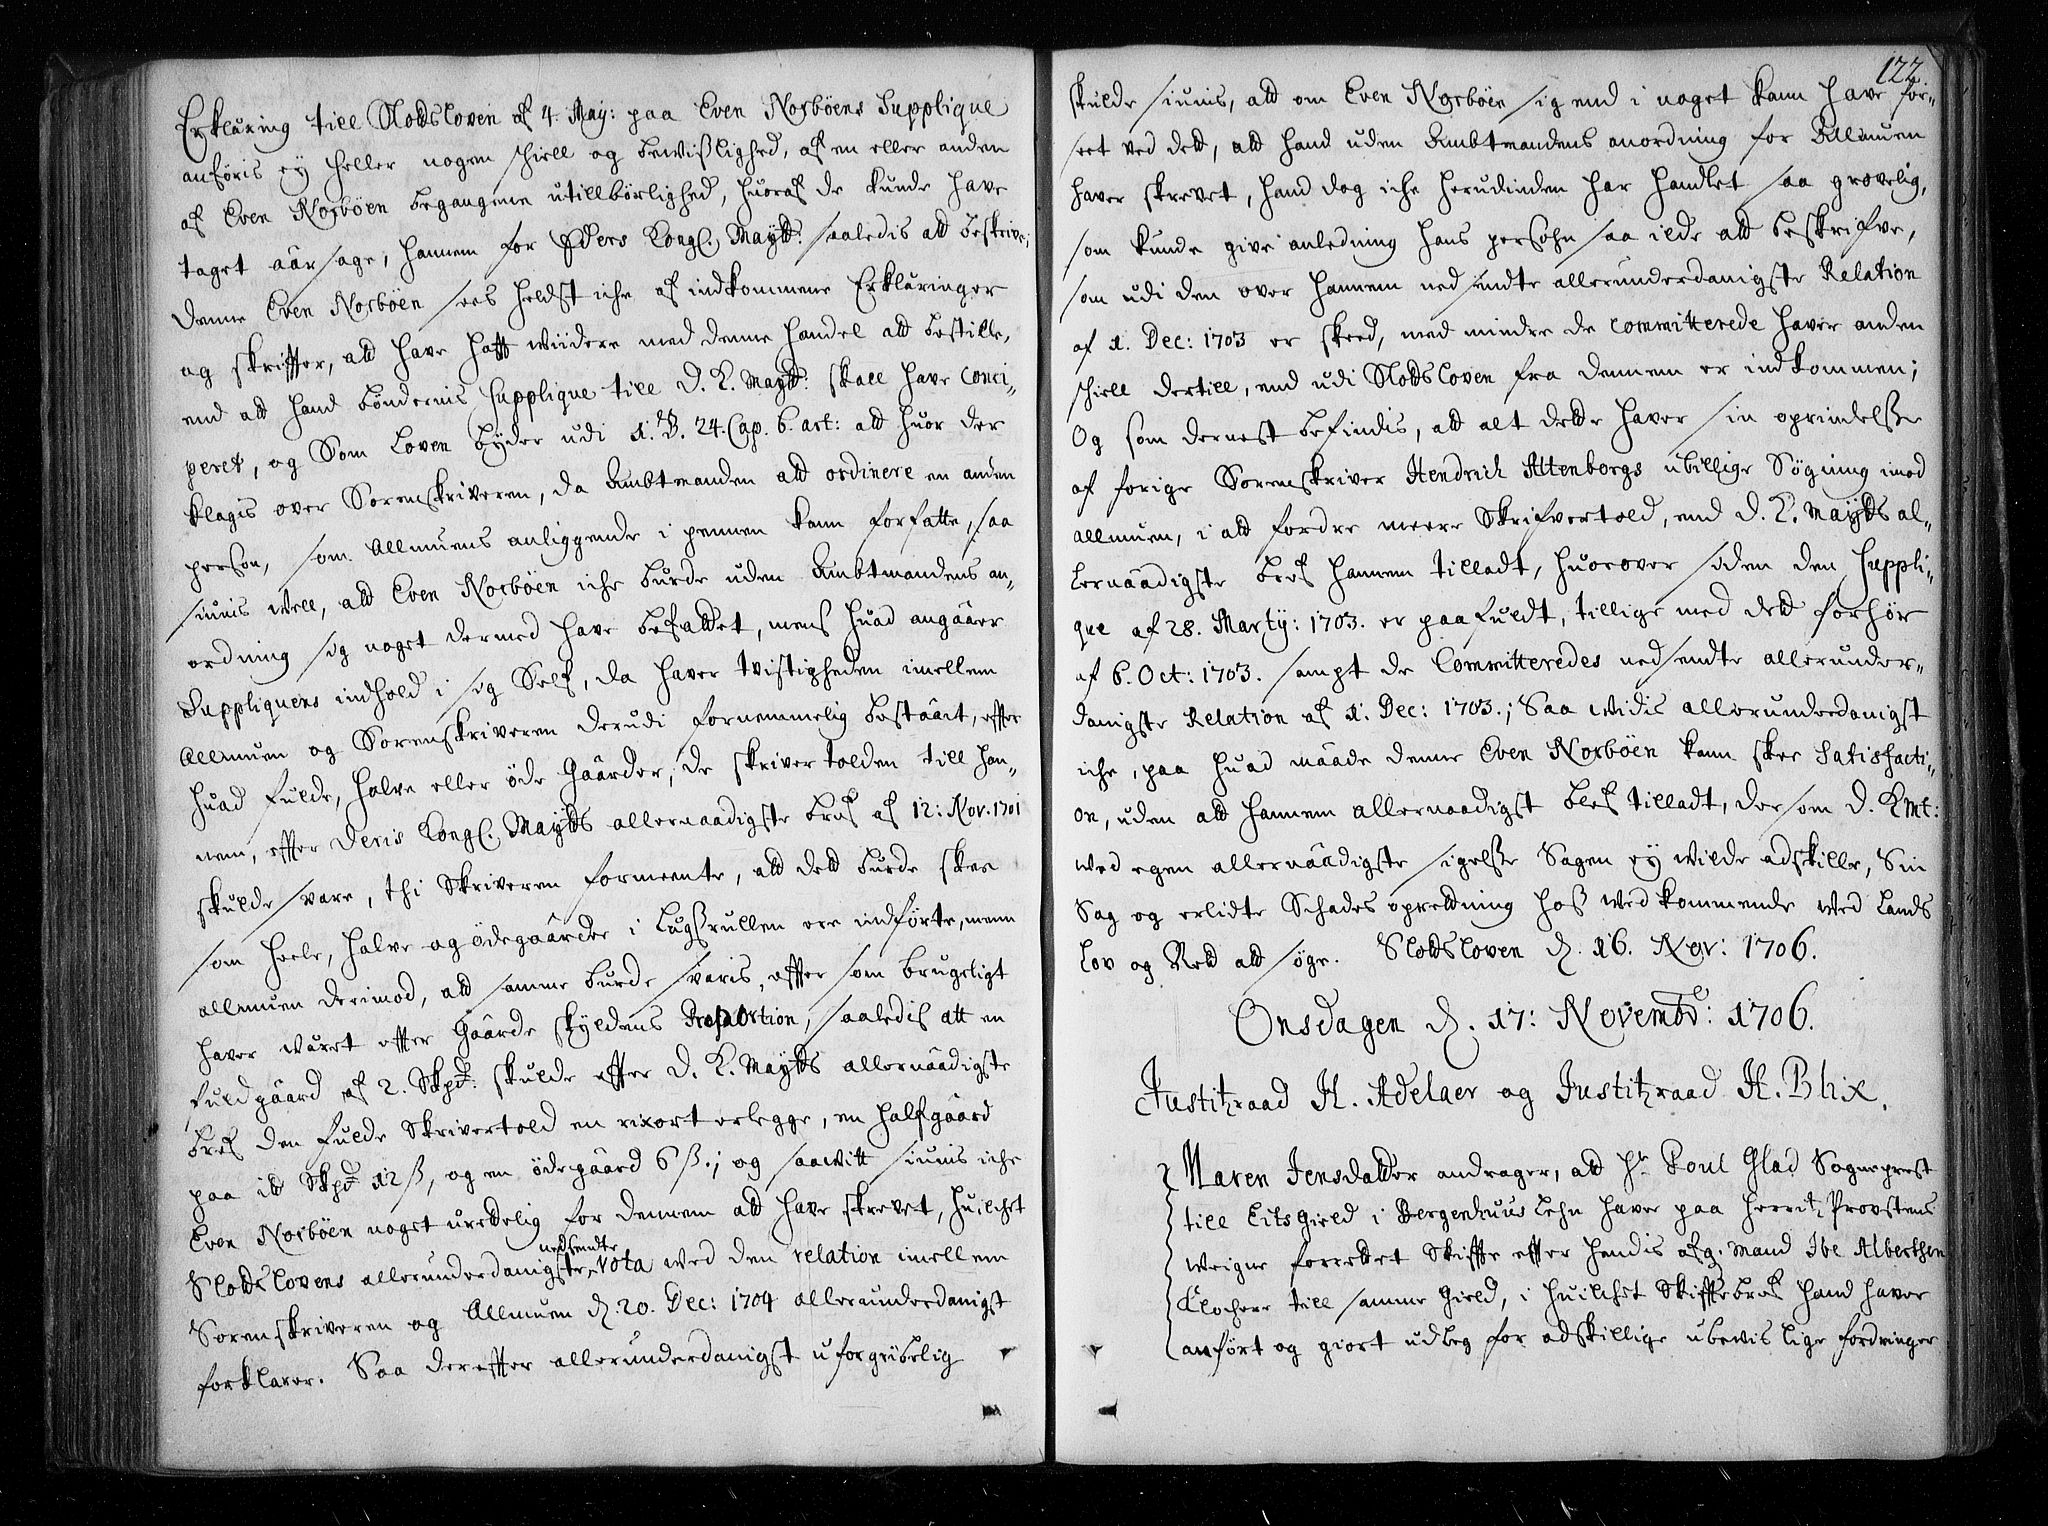 Erklæring till Slodsloven af 4. May: paa Even Norböens Supplique
anföris ey heller nogen skiell og bewißlighed, af en eller anden
af Even Norböen begangene utillbörlighed, huoraf de kunde have
taget aarsage, hannem for Eders Kongl. Maytt: saaledis att beskrive;
denne Even Norböen sees heldst iche af indkommene Erklæringer
og skriffter, att have hafft wiidere med denne handel att bestille,
end att hand böndernis Supplique till D. K. Maytt: skall have conci-
peret, og Som Loven byder udi 1. B. 24. Cap. 6. art: att huor der
klagis over Sorenskriveren, da Ambtmanden att ordinere en anden
person, som Allmuens anliggende i pennen kann forfatte, saa
siunis well, att Even Norböen iche burde uden Ambtmandens an-
ordning sig noget dermed have befattet, mens huad angaaer
Suppliquens indhold i sig Self, da haver tvistigheden imellem
Allmuen og Sorenskriveren derudi fornemmelig bestaaet, effter
huad fulde, halve eller öde Gaarder, de skrivertolden till han-
nem, effter Deris Kongl. Maytts allernaadigste bref af 12: Nov. 1701
skulde svare, thi Skriveren formeente, att dett burde skee
som heele, halve og ödegaarde i Lugßrullen ere indförte, menn
allmuen derimod, att samme burde svaris, effter som brugeligt
haver wæret effter Gaarde skyldens Proportion, saaledis att en
fuldgaard af 2. Skpd: skulde effter D. K. Maytts allernaadigste
bref den fulde Skrivertold en rixort erlegge, en halfgaard
paa itt Skpd 12 ß, og en ödegaard 6 ß.; og saawitt siunis iche
Even Norböen noget urettelig for dennem att have skrevet, huilchet
Slodslovens allerunderdanigste nedsendte Vota wed den relation imellem
Sorenskriveren og Allmuen d. 20. Dec: 1704 allerunderdanigst
forklarer. Saa dereffter allerunderdanigst uforgribelig
122.
skulde siunis, att om Even Norböen sig end i noget kann have for-
seet ved dett, att hand uden Ambtmandens anordning for Allmuen
haver skrevet, hand dog iche herudinden har handlet saa grovelig,
som kunde give anledning hans persohn saa ilde att beskrifve,
som udi den over hannem nedsendte allerunderdanigste Relation
af 1. Dec: 1703 er skeed, med mindre de committerede haver anden
skiell dertill, end udi Slodsloven fra dennem er indkommen;
Og som dernest befindis, att alt dette haver sin oprindelße
af forige Sorenskriver Hendrich Altenborgs ubillige Sögning imod
allmuen, i att fordre meere Skrifvertold, end D. K. Maytts al-
lernaadigste bref hannem tilladt, huorover siden den Suppli-
que af 28. Marty: 1703. er paafuldt, tillige med dett forhör
af 6. Oct: 1703. sampt de Committeredes nedsendte allerunder-
danigste Relation af 1. Dec: 1703.; Saa widis allerunderdanigst
iche, paa huad maade denne Even Norböen kann skee Satisfacti-
on, uden att hannem allernaadigst blef tilladt, dersom D. K Mt:
wed egen allernaadigste sigelße Sagen ey wilde adskille, Sin
Sag og erlidte Schades oprettning hoß wedkommende wed Lands
Lov og Rett att söge. Slodsloven d. 16. Nov: 1706.
Onsdagen d. 17: Novembr: 1706.
Justitzraad H. Adelaer og Justitzraad H. Blix.
Maren Jensdatter andrager, att Hr. Poul Glad Sogneprest
till Eids Gield i Bergenhuus Lehn haver paa Herritz Provstens
weigne forrettet Skiffte effter hendis afg. Mand Ibe Alberthsen
Klocher till samme Gield, i huilchet Skifftebref hand haver
anfört og giort udleg for adskillige ubevislige fordringer